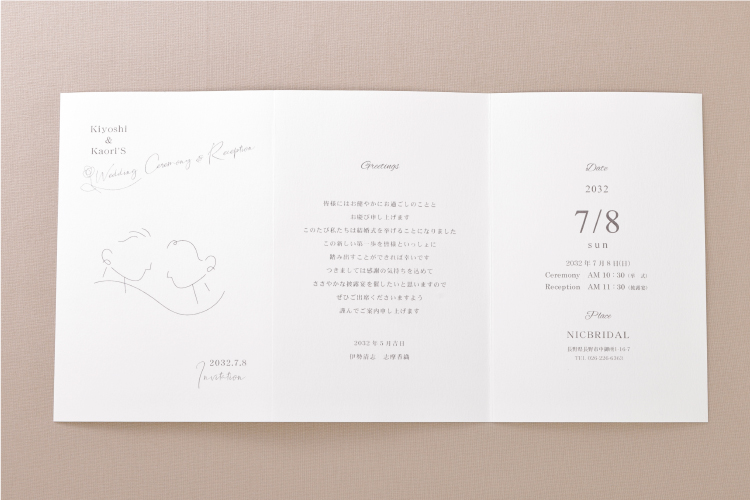 Kiyoshi
&
Kaori'S
Wedding Ceremony & Reception
2032.7.8
Invitation
Greetings
皆様にはお健やかにお過ごしのことと
お慶び申し上げます
このたび私たちは結婚式を挙げることになりました
この新しい第一歩を皆様といっしょに
踏み出すことができれば幸いです
つきましては感謝の気持ちを込めて
ささやかな披露宴を催したいと思いますので
ぜひご出席くださいますよう
謹んでご案内申し上げます
2032年5月吉日
伊勢清志 志摩香織
Date
2032
7/8
sun
2032年7月8日(日)
Ceremony AM 10:30 (挙 式)
Reception AM 11:30 (披露宴)
Place
NICBRIDAL
長野県長野市中御所1-16-7
TEL 026-228-6363